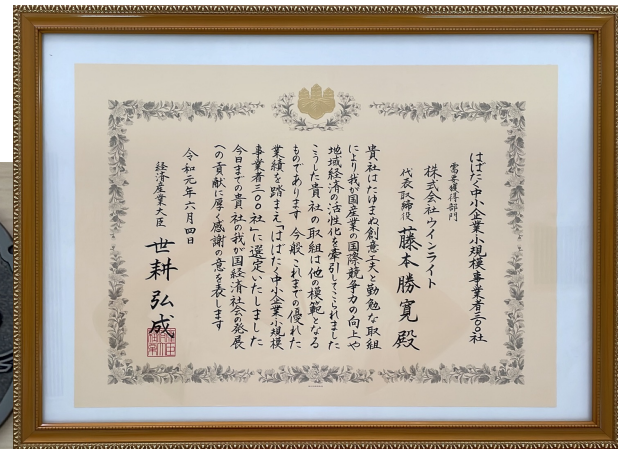 はばたく中小企業・小規模事業者三〇〇社
需要獲得部門
株式会社ウインライト
代表取締役 藤本勝寛 殿
貴社はたゆまぬ創意工夫と勤勉な取組
により我が国産業の国際競争力の向上や
地域経済の活性化を牽引してこられました
こうした貴社の取組は他の模範となる
ものであります 今般これまでの優れた
業績を踏まえ「はばたく中小企業・小規模
事業者三〇〇社」に選定いたしました
今日までの貴社の我が国経済社会の発展
への貢献に厚く感謝の意を表します
令和元年六月四日
経済産業大臣 世耕弘成